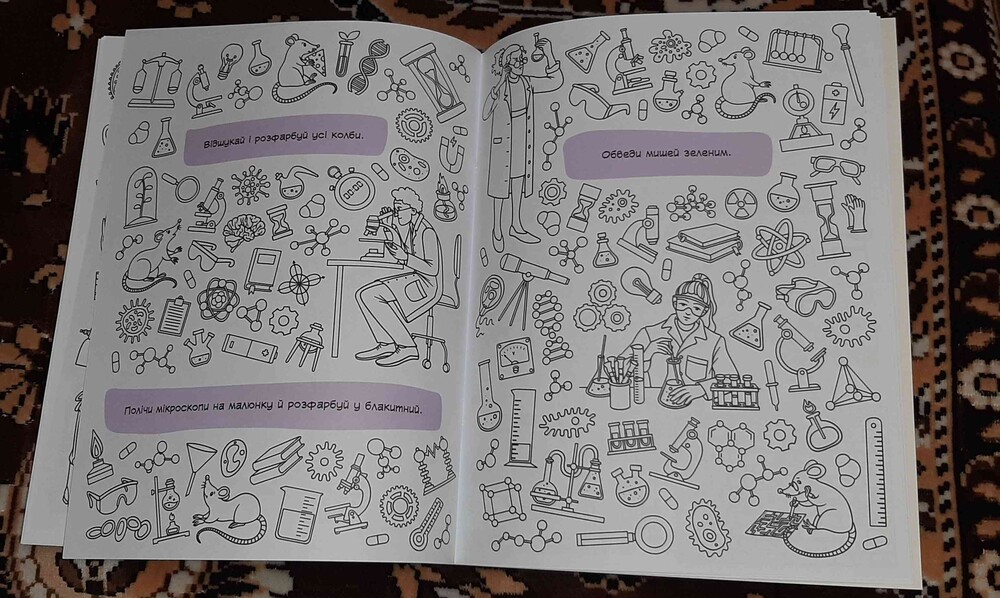 Відшукай і розфарбуй усі колби.
Полічи мікроскопи на малюнку й розфарбуй у блакитний.
Обведи мишей зеленим.